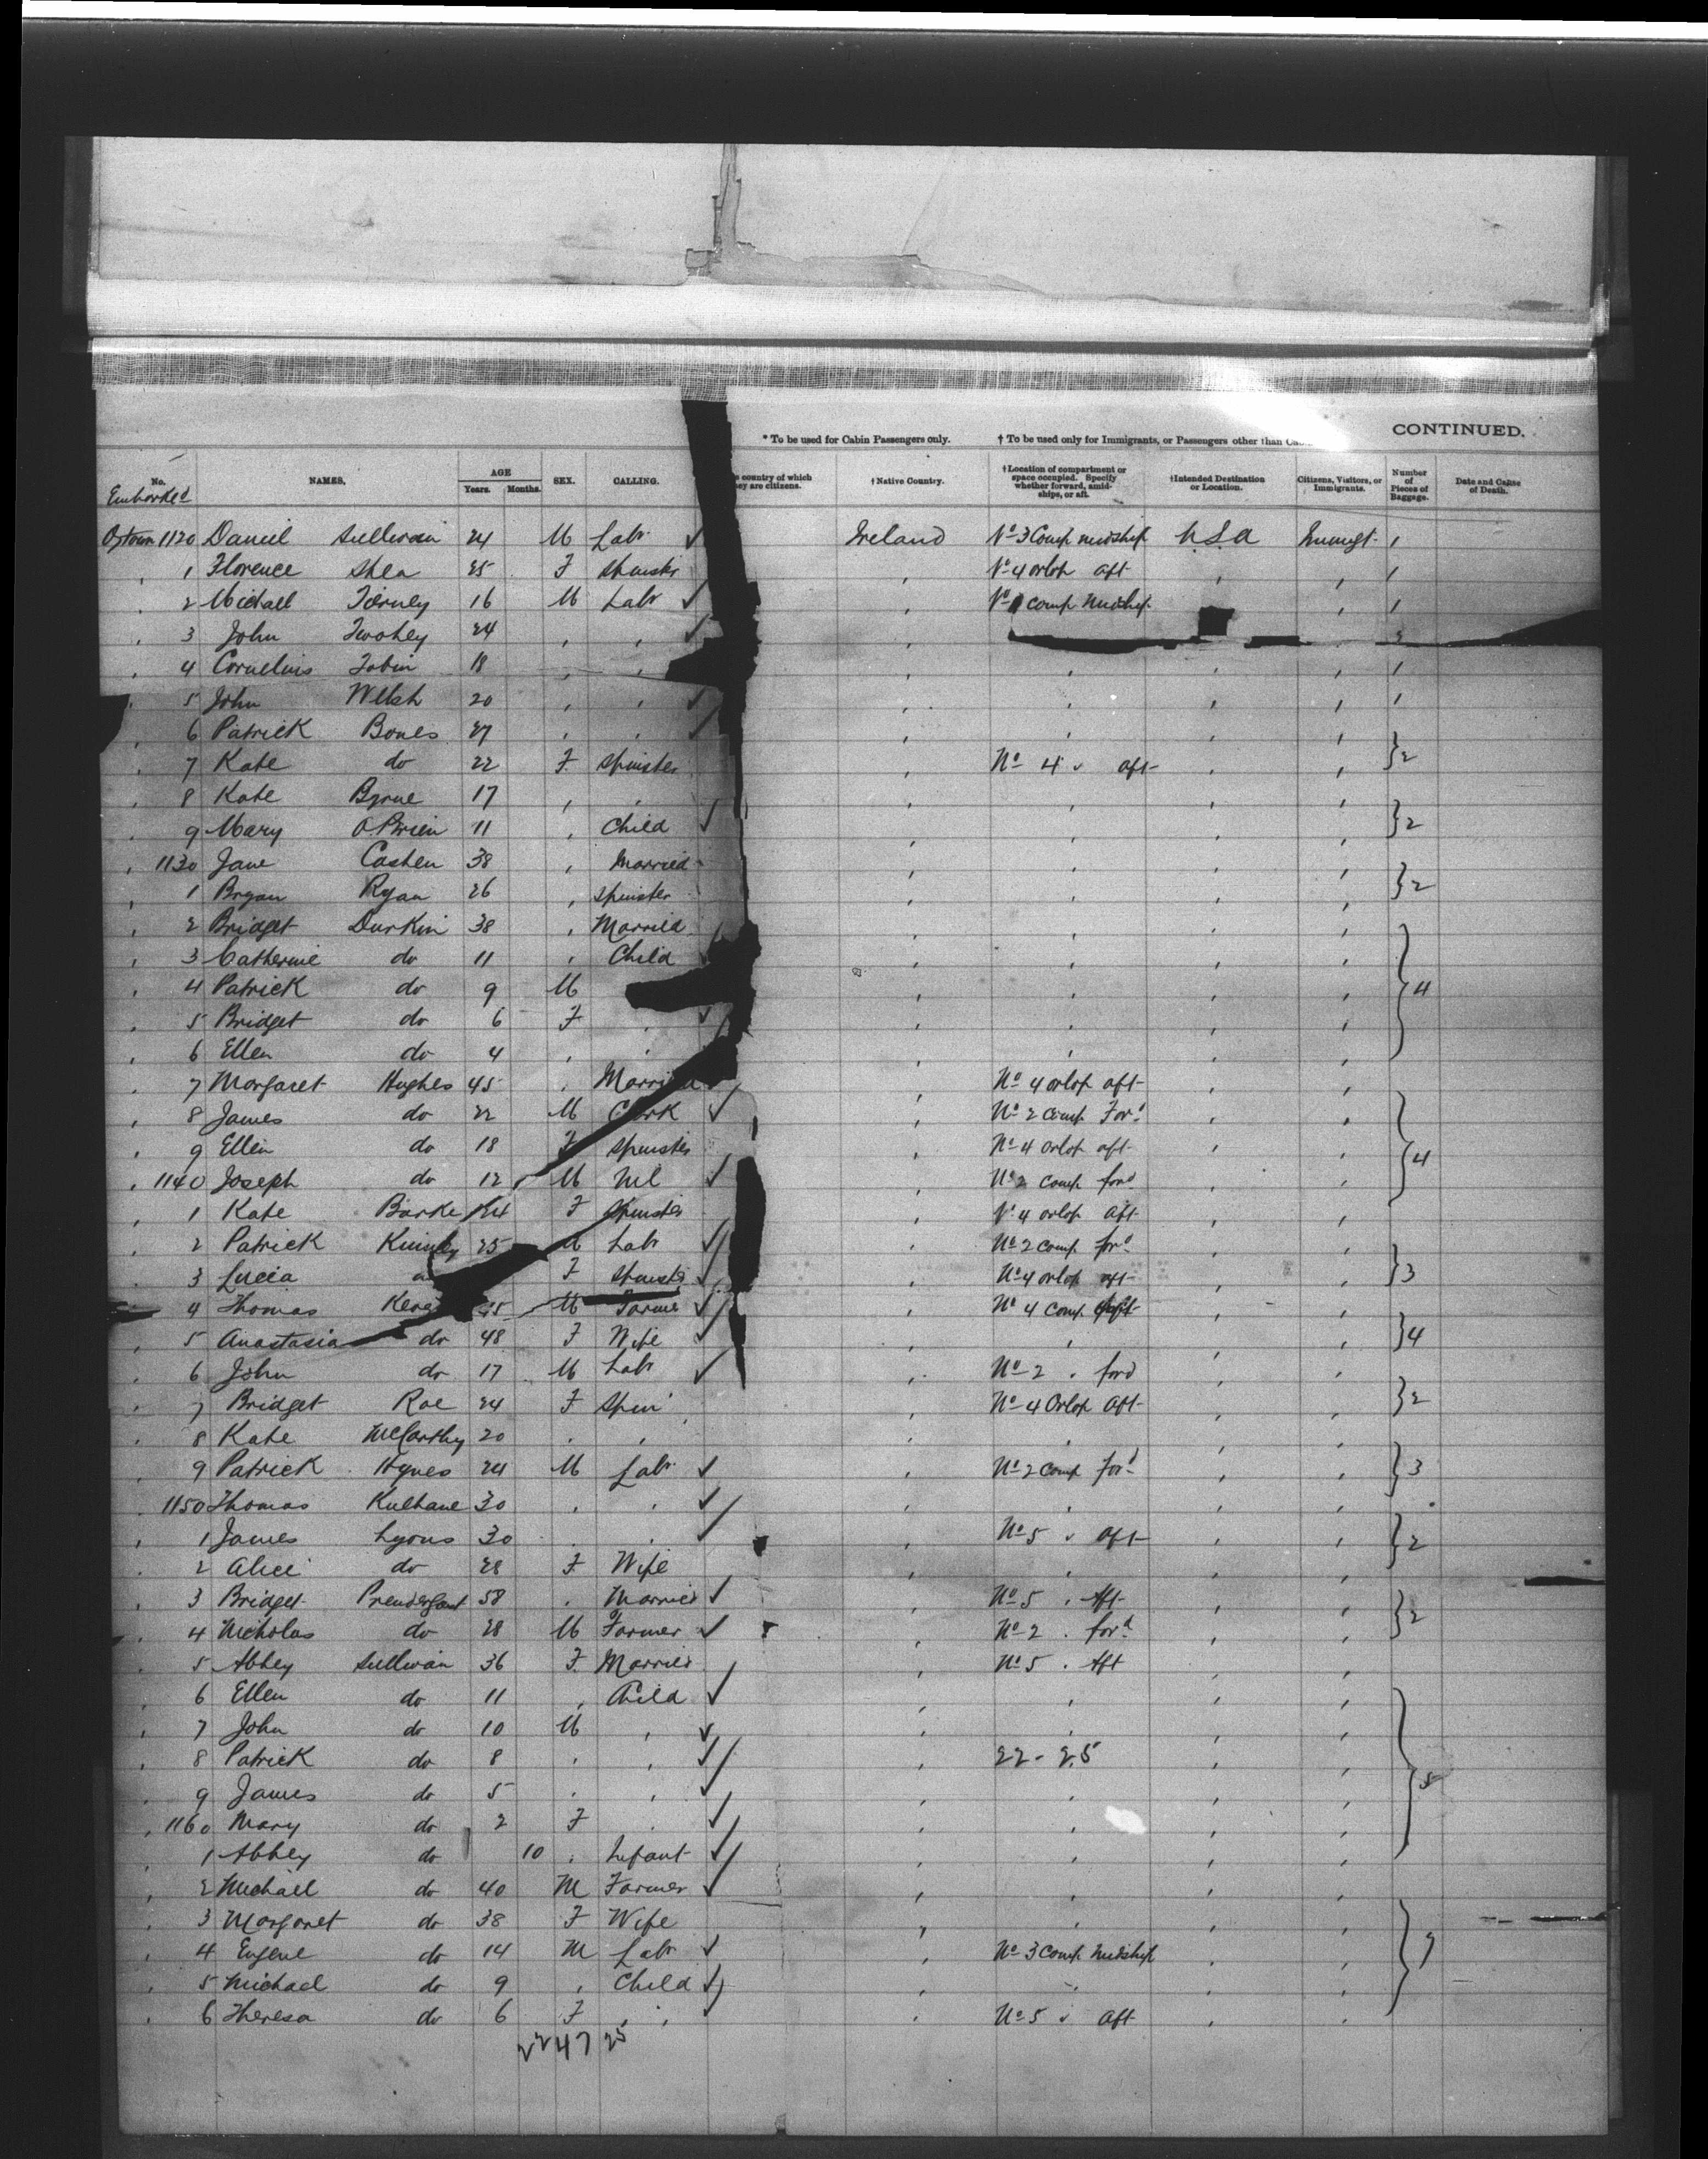 * To be used for Cabin Passengers only. † To be used only for Immigrants, or Passengers other than CONTINUED.
No. NAMES. AGE Years. Months. SEX. CALLING. country of which they are citizens. †Native Country. †Location of compartment or space occupied. Specify whether forward, amidships, or aft. †Intended Destination or Location. Citizens, Visitors, or Immigrants. Number of Pieces of Baggage. Date and Cause of Death.
Embarked
Qstown 1120 Daniel Sullivan 24 M Labr ✓ Ireland No 3 Comp midship U S A Immigt 1
" 1 Florence Shea 25 F Spinster " No 4 orlop aft " " 1
" 2 Michael Tierney 16 M Labr ✓ " No comp Midship " 1
" 3 John Twohey 24 " " ✓ "
" 4 Cornelius Tobin 18 " " " " " " 1
" 5 John Welsh 20 " " ✓ " " " " 1
" 6 Patrick Bones 27 " " ✓ " " " " } 2
" 7 Kate do 22 F Spinster " No 4 " aft " "
" 8 Kate Byrne 17 " " " " " " } 2
" 9 Mary O'Brien 11 " Child ✓ " " " "
" 1130 Jane Cashen 38 " Married " " " " } 2
" 1 Bryan Ryan 26 " Spinster " " " "
" 2 Bridget Durkin 38 " Married " " " " } 4
" 3 Catherine do 11 " Child " " " "
" 4 Patrick do 9 M " " " "
" 5 Bridget do 6 F " ✓ " " " "
" 6 Ellen do 4 " " " " " "
" 7 Margaret Hughes 45 " Married " No 4 orlop aft " " } 4
" 8 James do 22 M Clerk ✓ " No 2 comp Ford " "
" 9 Ellen do 18 F Spinster " No 4 orlop aft " "
" 1140 Joseph do 12 M Nil ✓ " No 2 comp ford " "
" 1 Kate Burke 24 F Spinster " No 4 orlop aft " "
" 2 Patrick 25 M Labr ✓ " No 2 comp ford " " } 3
" 3 Lucia F Spinster ✓ " No 4 orlop aft " "
" 4 Thomas M Farmer ✓ " No 4 comp aft " " } 4
" 5 Anastasia do 48 F Wife ✓ " " " "
" 6 John do 17 M Labr ✓ " No 2 " ford " "
" 7 Bridget Roe 24 F Spin " No 4 Orlop aft " " } 2
" 8 Kate McCarthy 20 " " " " " "
" 9 Patrick Hynes 24 M Labr ✓ " No 2 Comp Ford " " } 3
" 1150 Thomas Kulhane 30 " " ✓ " " " "
" 1 James Lyons 30 " " ✓ " No 5 " aft " " } 2
" 2 Alice do 28 F Wife " " " "
" 3 Bridget Prendergast 58 " Married ✓ " No 5 " Aft " " } 2
" 4 Nicholas do 28 M Farmer ✓ " No 2 " ford " "
" 5 Abbey Sullivan 36 F Married " No 5 " Aft " " } 5
" 6 Ellen do 11 " Child ✓ " " " "
" 7 John do 10 M " ✓ " " " "
" 8 Patrick do 8 " " ✓ " 22 - 25 " "
" 9 James do 5 " " ✓ " " " "
" 1160 Mary do 2 F " ✓ " " " "
" 1 Abbey do 10 " Infant ✓ " " " "
" 2 Michael do 40 M Farmer ✓ " " " " } 7
" 3 Margaret do 38 F Wife " " " "
" 4 Eugene do 14 M Labr ✓ " No 3 Comp Midship " "
" 5 Michael do 9 " Child ✓ " " " "
" 6 Theresa do 6 F " ✓ " No 5 " aft " "
22 47 25